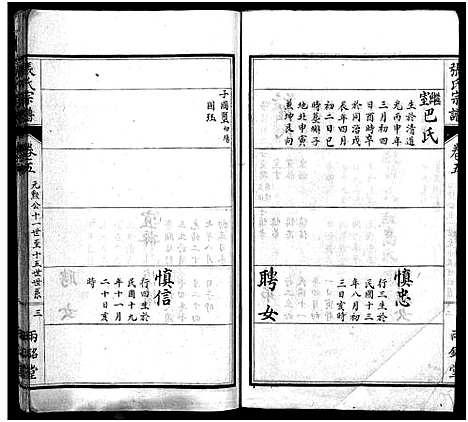 張氏宗譜
卷五
兩銘堂
繼室巴氏
生於清道
光丙申年
三月初四
日酉時卒
於同治戌
辰年四月
初二日巳
時墓獅子
地北甲寅
兼坤艮向
慎忠
行三生於
民國十三
年八月初
三日亥時
聘女
子國
國珏
慎信
行四生於
民國十九
年十一月
二十日亥
時
張氏宗譜
卷五
元勲公十一世至十五世世系
三
兩銘堂